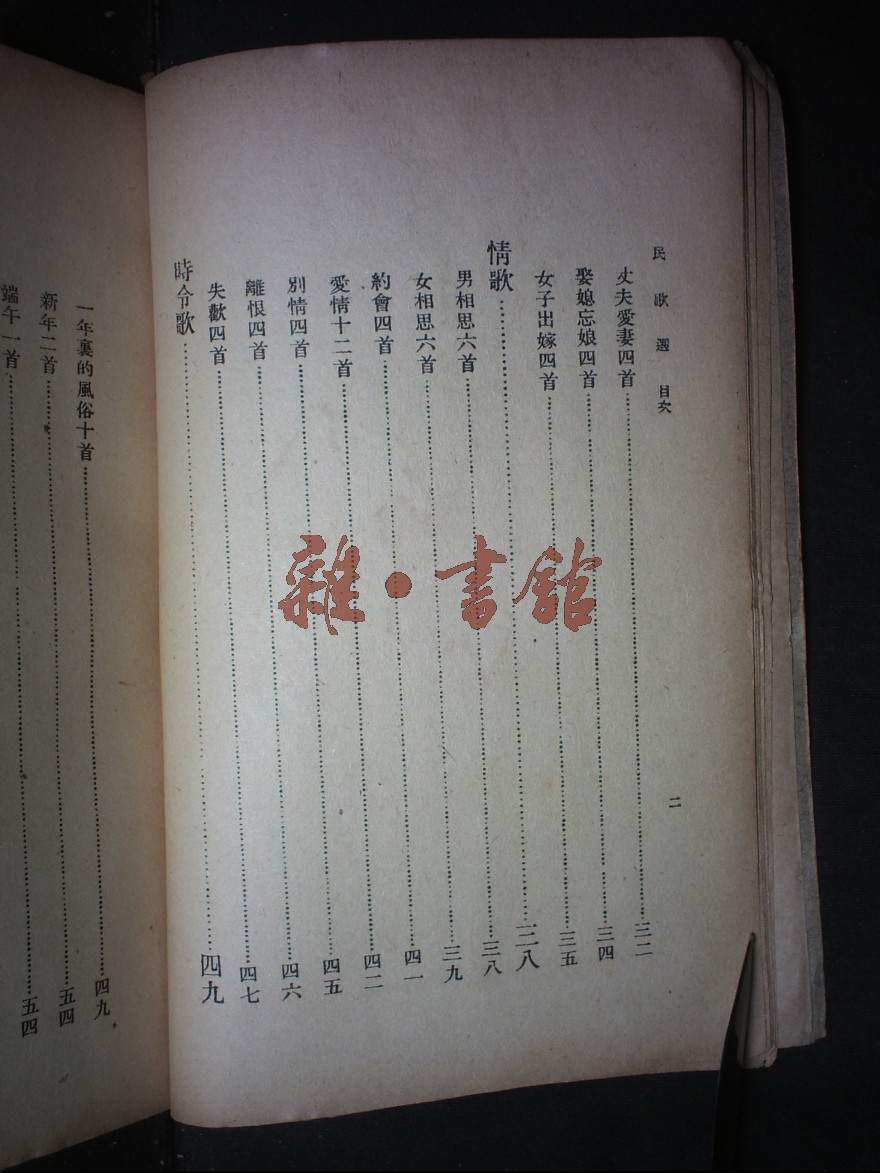 民歌選 目次 二
丈夫愛妻四首……三二
娶媳忘娘四首……三四
女子出嫁四首……三五
情歌……三八
男相思六首……三八
女相思六首……三九
約會四首……四一
愛情十二首……四二
別情四首……四五
離恨四首……四六
失歡四首……四七
時令歌……四九
一年裏的風俗十首……四九
新年二首……五四
端午一首……五四
雜·書館